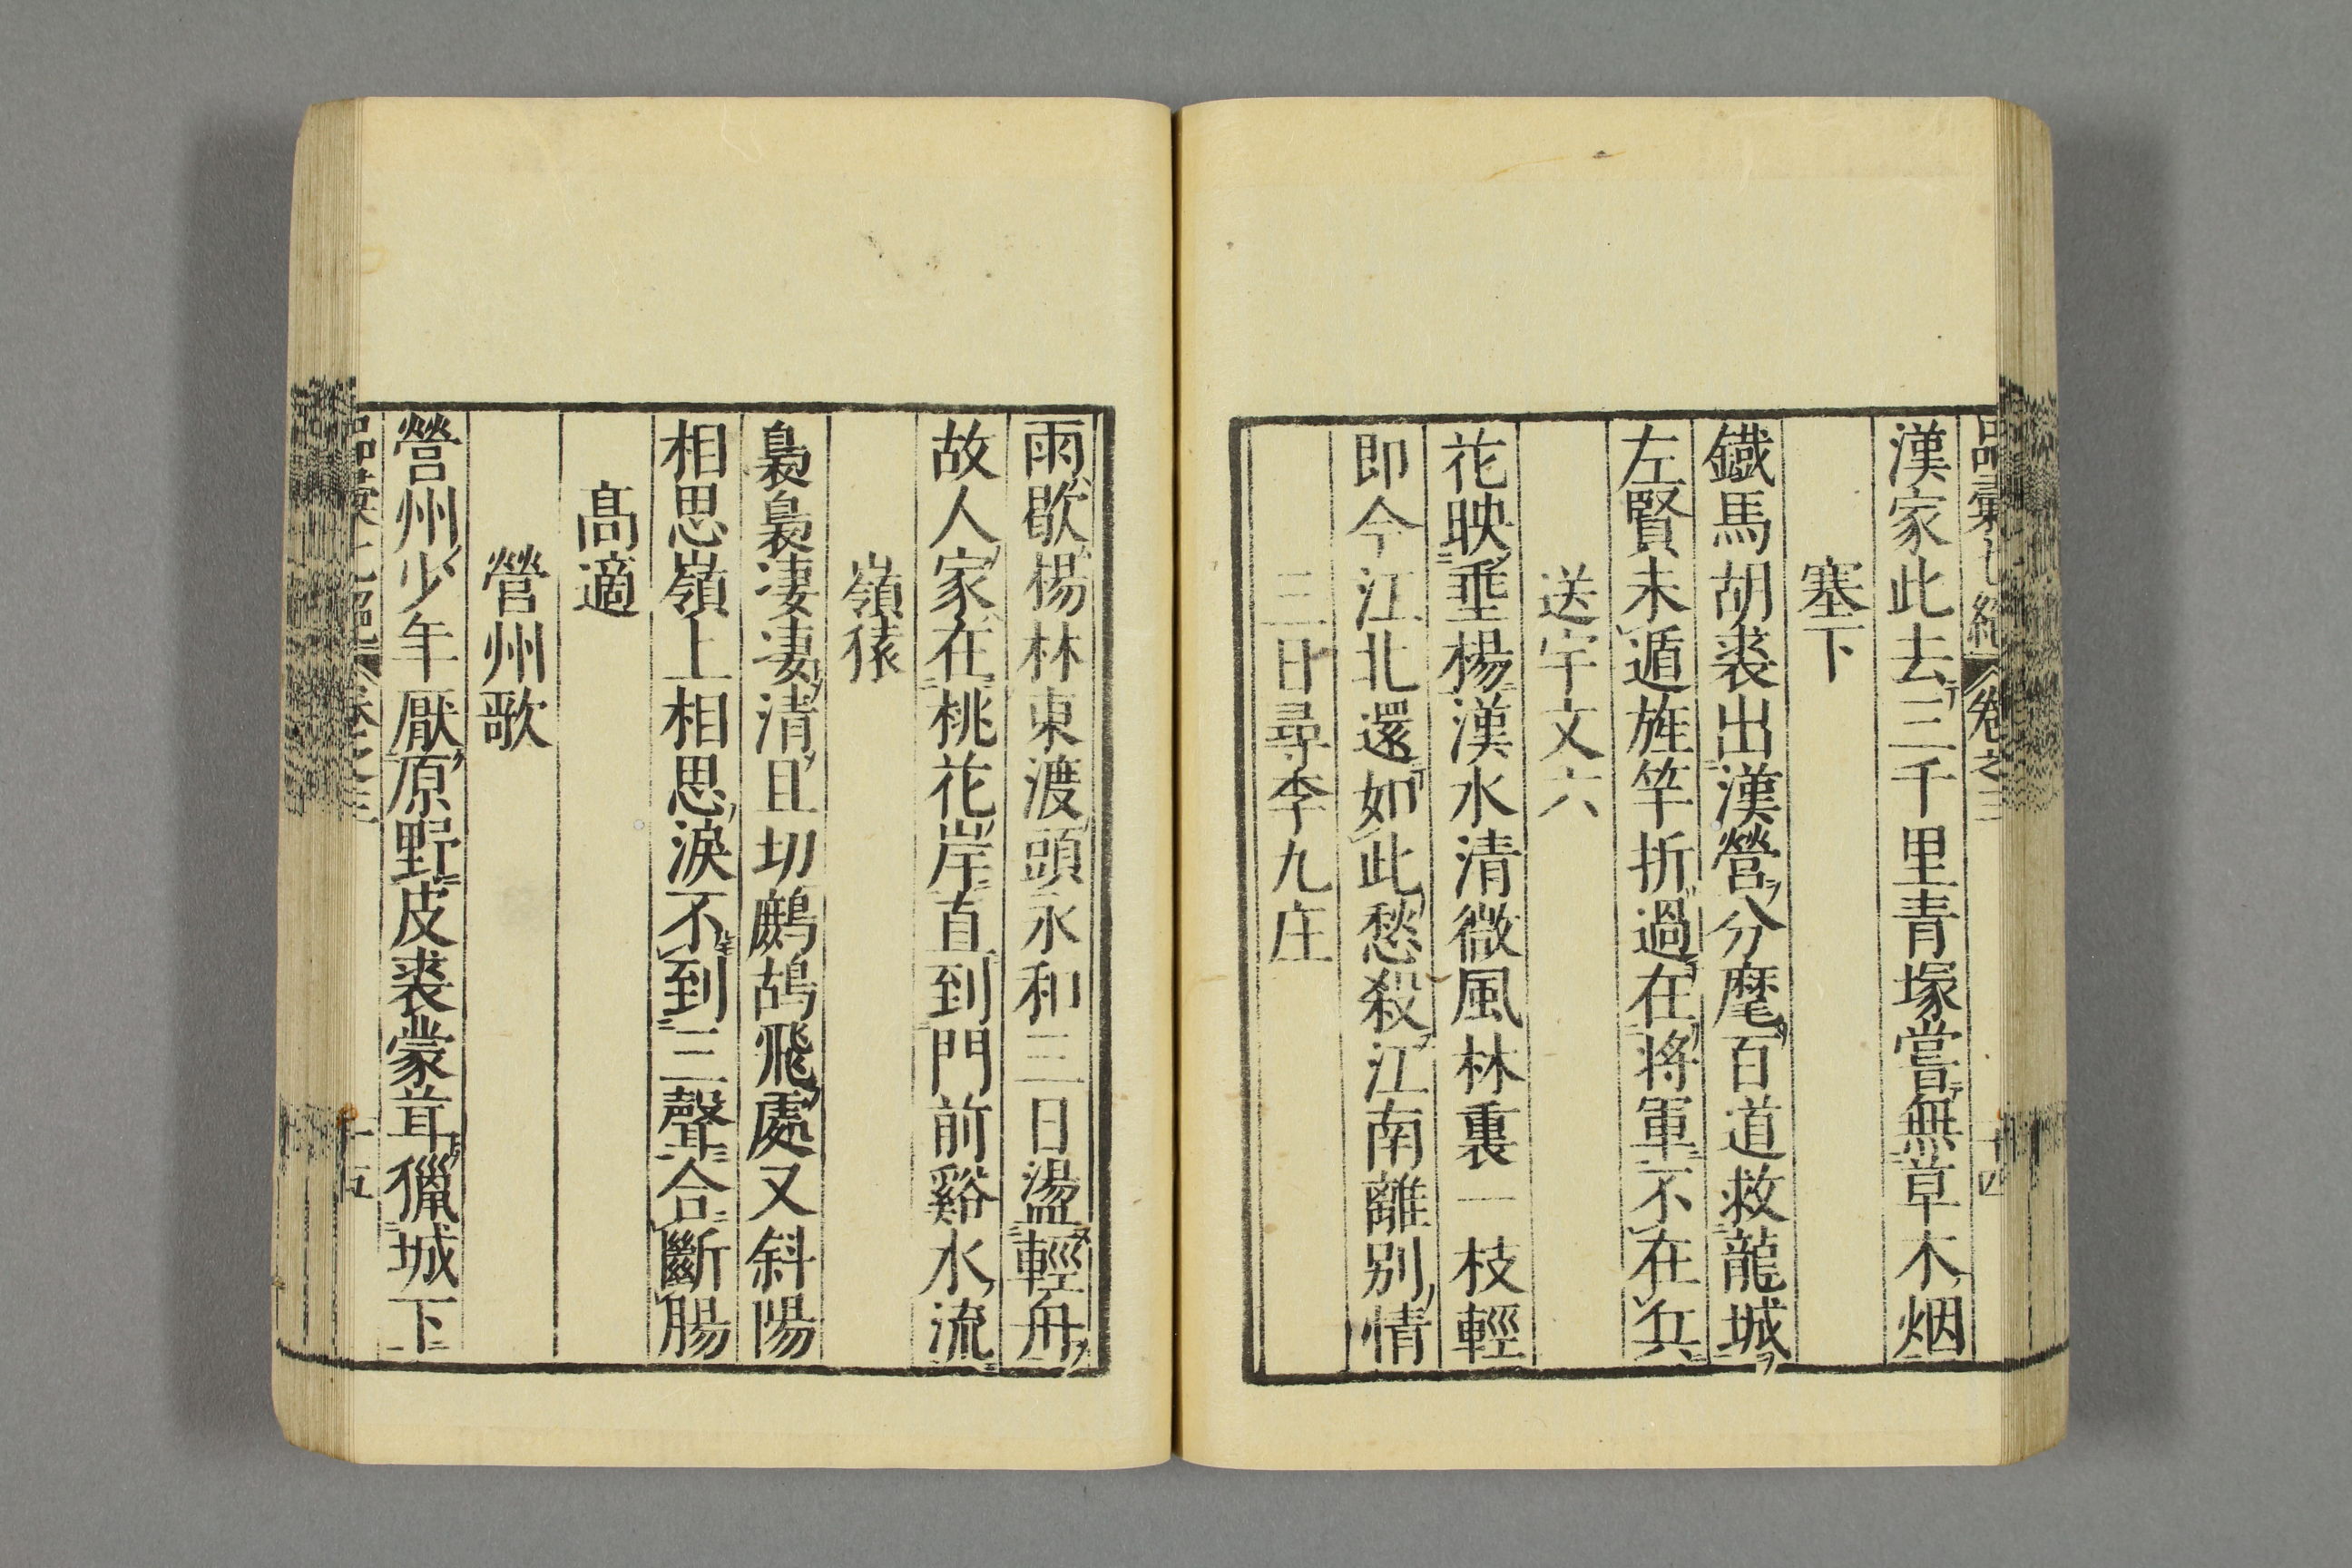 品彙七絶 卷之三 十四
漢家此去三千里青塚嘗無草木烟
塞下
鐵馬胡裘出漢營分麾百道救龍城
左賢未遁旌竿折過在將軍不在兵
送宇文六
花映垂楊漢水清微風林裏一枝輕
即今江北還如此愁殺江南離別情
三日尋李九庄
雨歇楊林東渡頭永和三日盪輕舟
故人家在桃花岸直到門前谿水流
嶺猿
裊裊淒淒清且切鷓鴣飛處又斜陽
相思嶺上相思淚不到三聲合斷腸
髙適
營州歌
營州少年厭原野皮裘蒙茸獵城下
品彙七絕 卷之三 十五